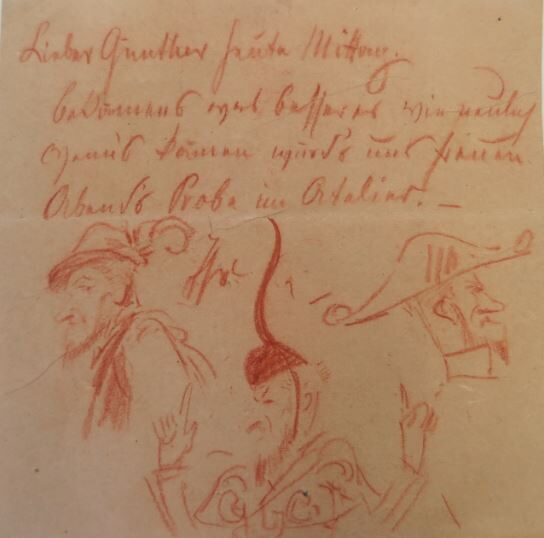 Lieber Gunther heute Mittag.
bekämens was besseres wie neulich
wenn's kämen würd's uns freuen.
Abend's Probe im Atelier. –
Ihr